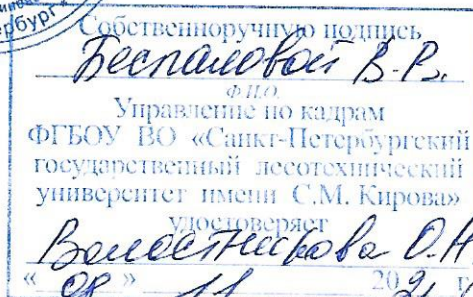 Собственноручную подпись
Беспаловой В.Р.
Ф.И.О.
Управление по кадрам
ФГБОУ ВО «Санкт-Петербургский
государственный лесотехнический
университет имени С.М. Кирова»
удостоверяет
О.Н.
« 08 » 11 202 г.